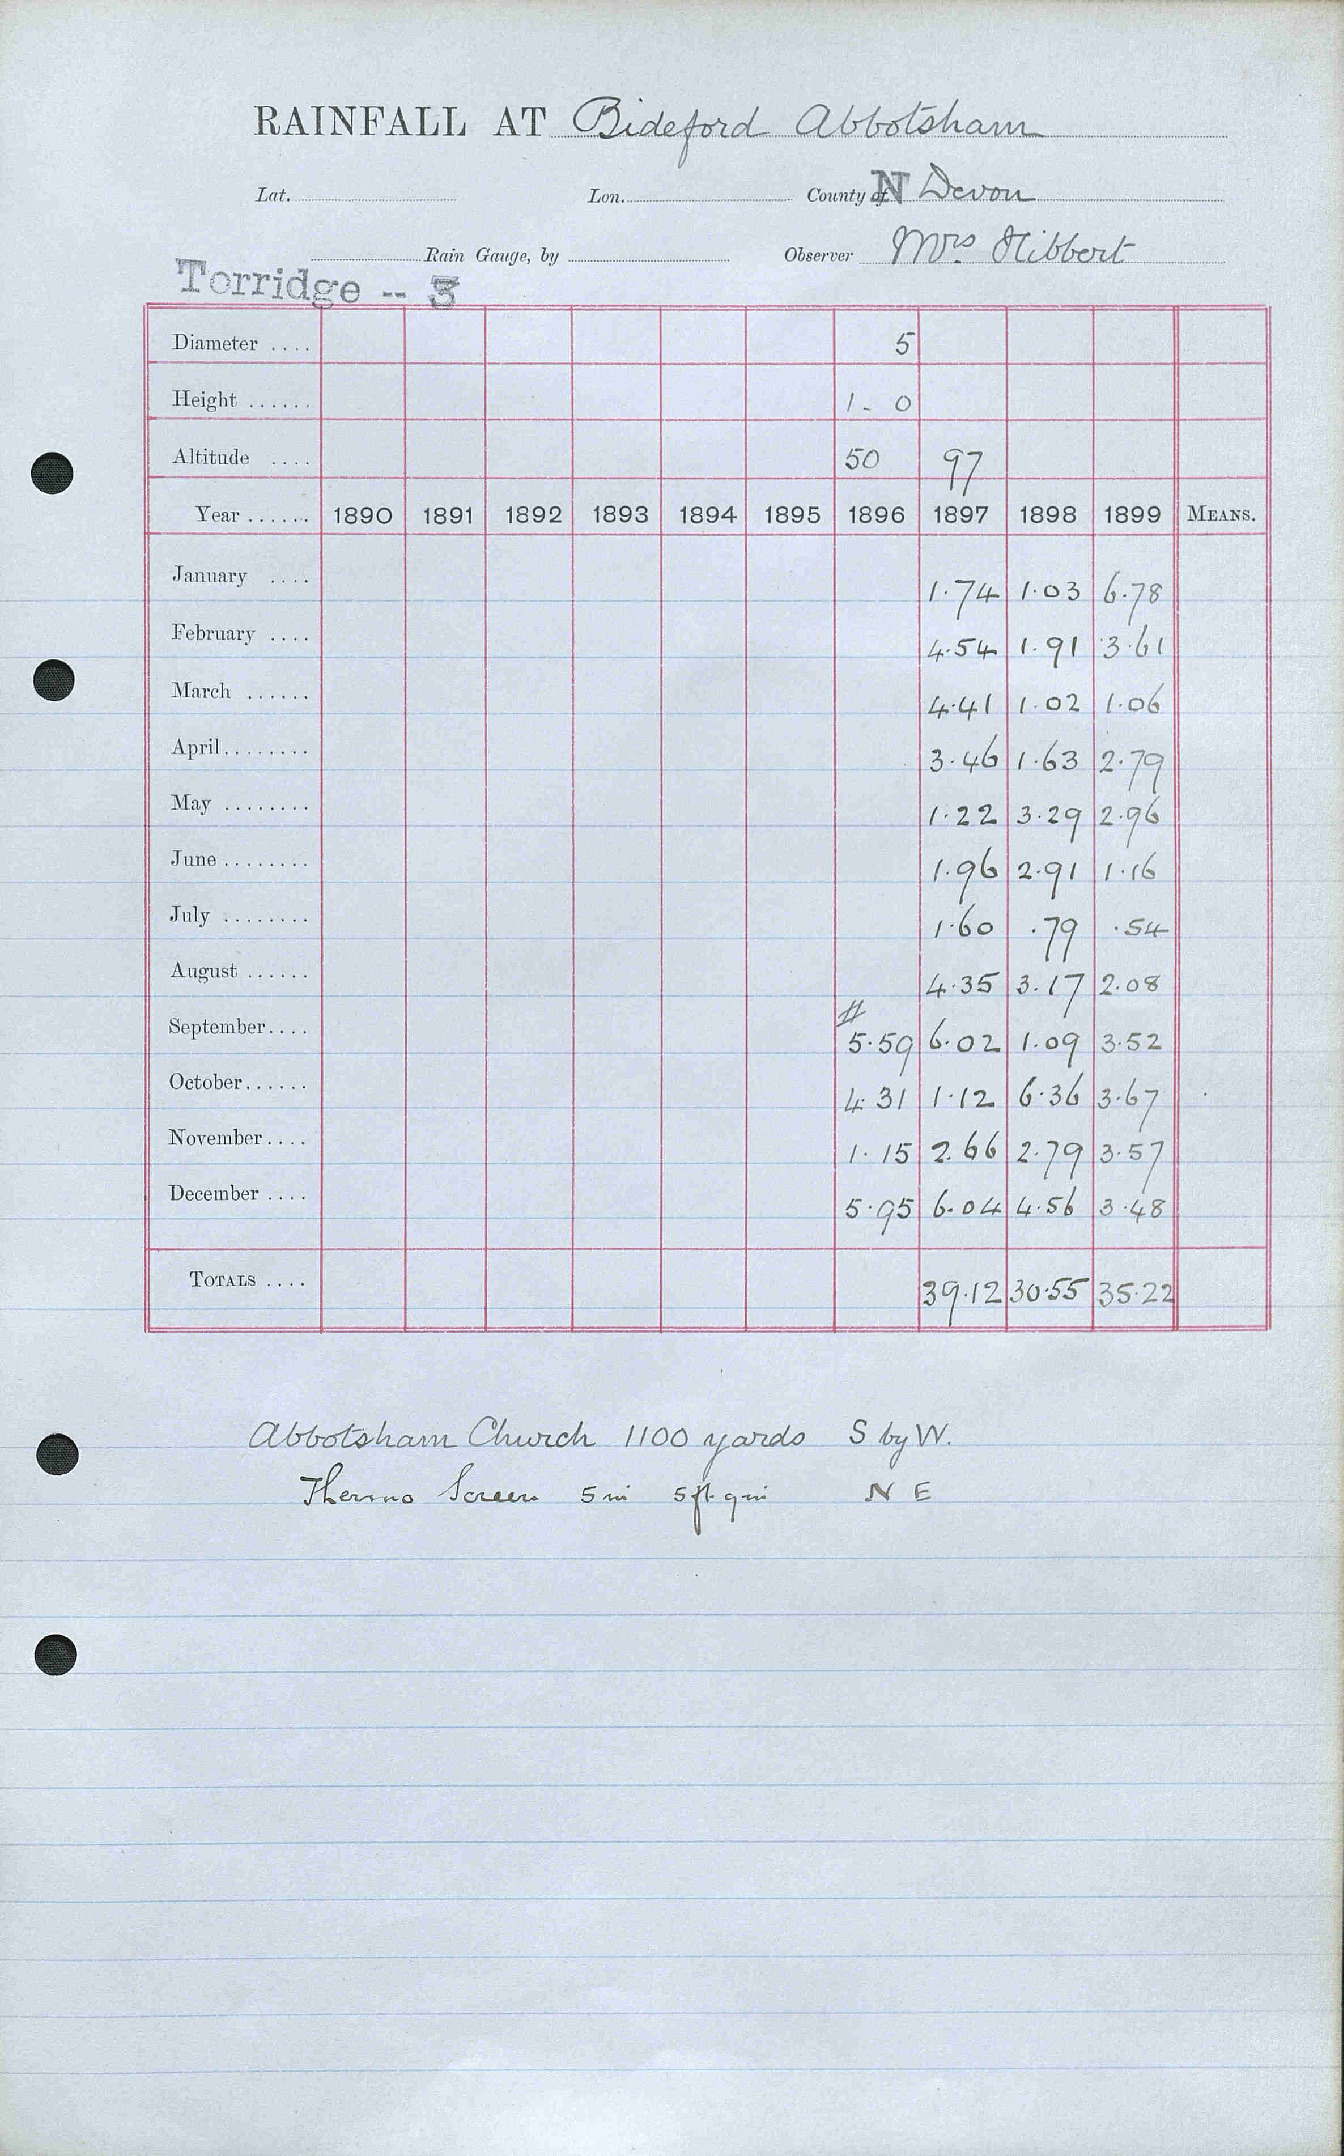 RAINFALL AT Bideford Abbotsham
Lat. Lon. County of N Devon
Rain Gauge, by Observer Mrs Hibbert
Torridge -- 3
Diameter .... 5
Height ...... 1 - 0
Altitude .... 50 97
Year ...... 1890 1891 1892 1893 1894 1895 1896 1897 1898 1899 MEANS.
January .... 1.74 1.03 6.78
February .... 4.54 1.91 3.61
March ...... 4.41 1.02 1.06
April........ 3.46 1.63 2.79
May ........ 1.22 3.29 2.96
June ........ 1.96 2.91 1.16
July ........ 1.60 .79 .54
August ...... 4.35 3.17 2.08
#
September.... 5.59 6.02 1.09 3.52
October...... 4.31 1.12 6.36 3.67
November.... 1.15 2.66 2.79 3.57
December .... 5.95 6.04 4.56 3.48
TOTALS .... 39.12 30.55 35.22
Abbotsham Church 1100 yards S by W.
Thermo Screen 5 in 5 ft. 9 in N E